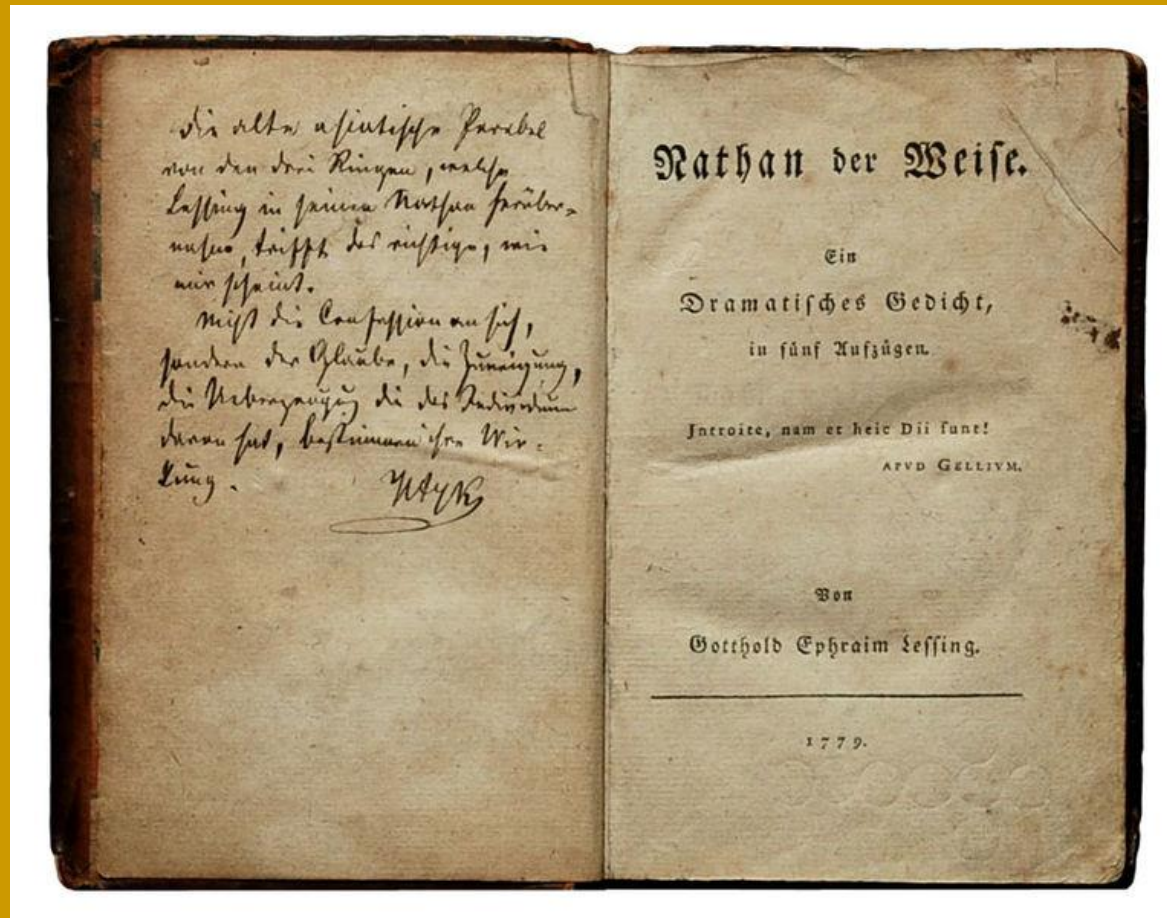 Die alte asiatische Parabel
von den drei Ringen, welche
Lessing in seinen Nathan herüber-
nahm, trifft das richtige, wie
mir scheint.
Nicht die Confession an sich,
sondern der Glaube, die Zuneigung,
die Ueberzeugung die das Individuum
daran hat, bestimmen ihre Wir-
kung.
Nathan der Weiſe.
Ein
Dramatiſches Gedicht,
in fünf Aufzügen.
Introite, nam et heic Dii ſunt!
APVD GELLIVM.
Von
Gotthold Ephraim Leſſing.
1779.